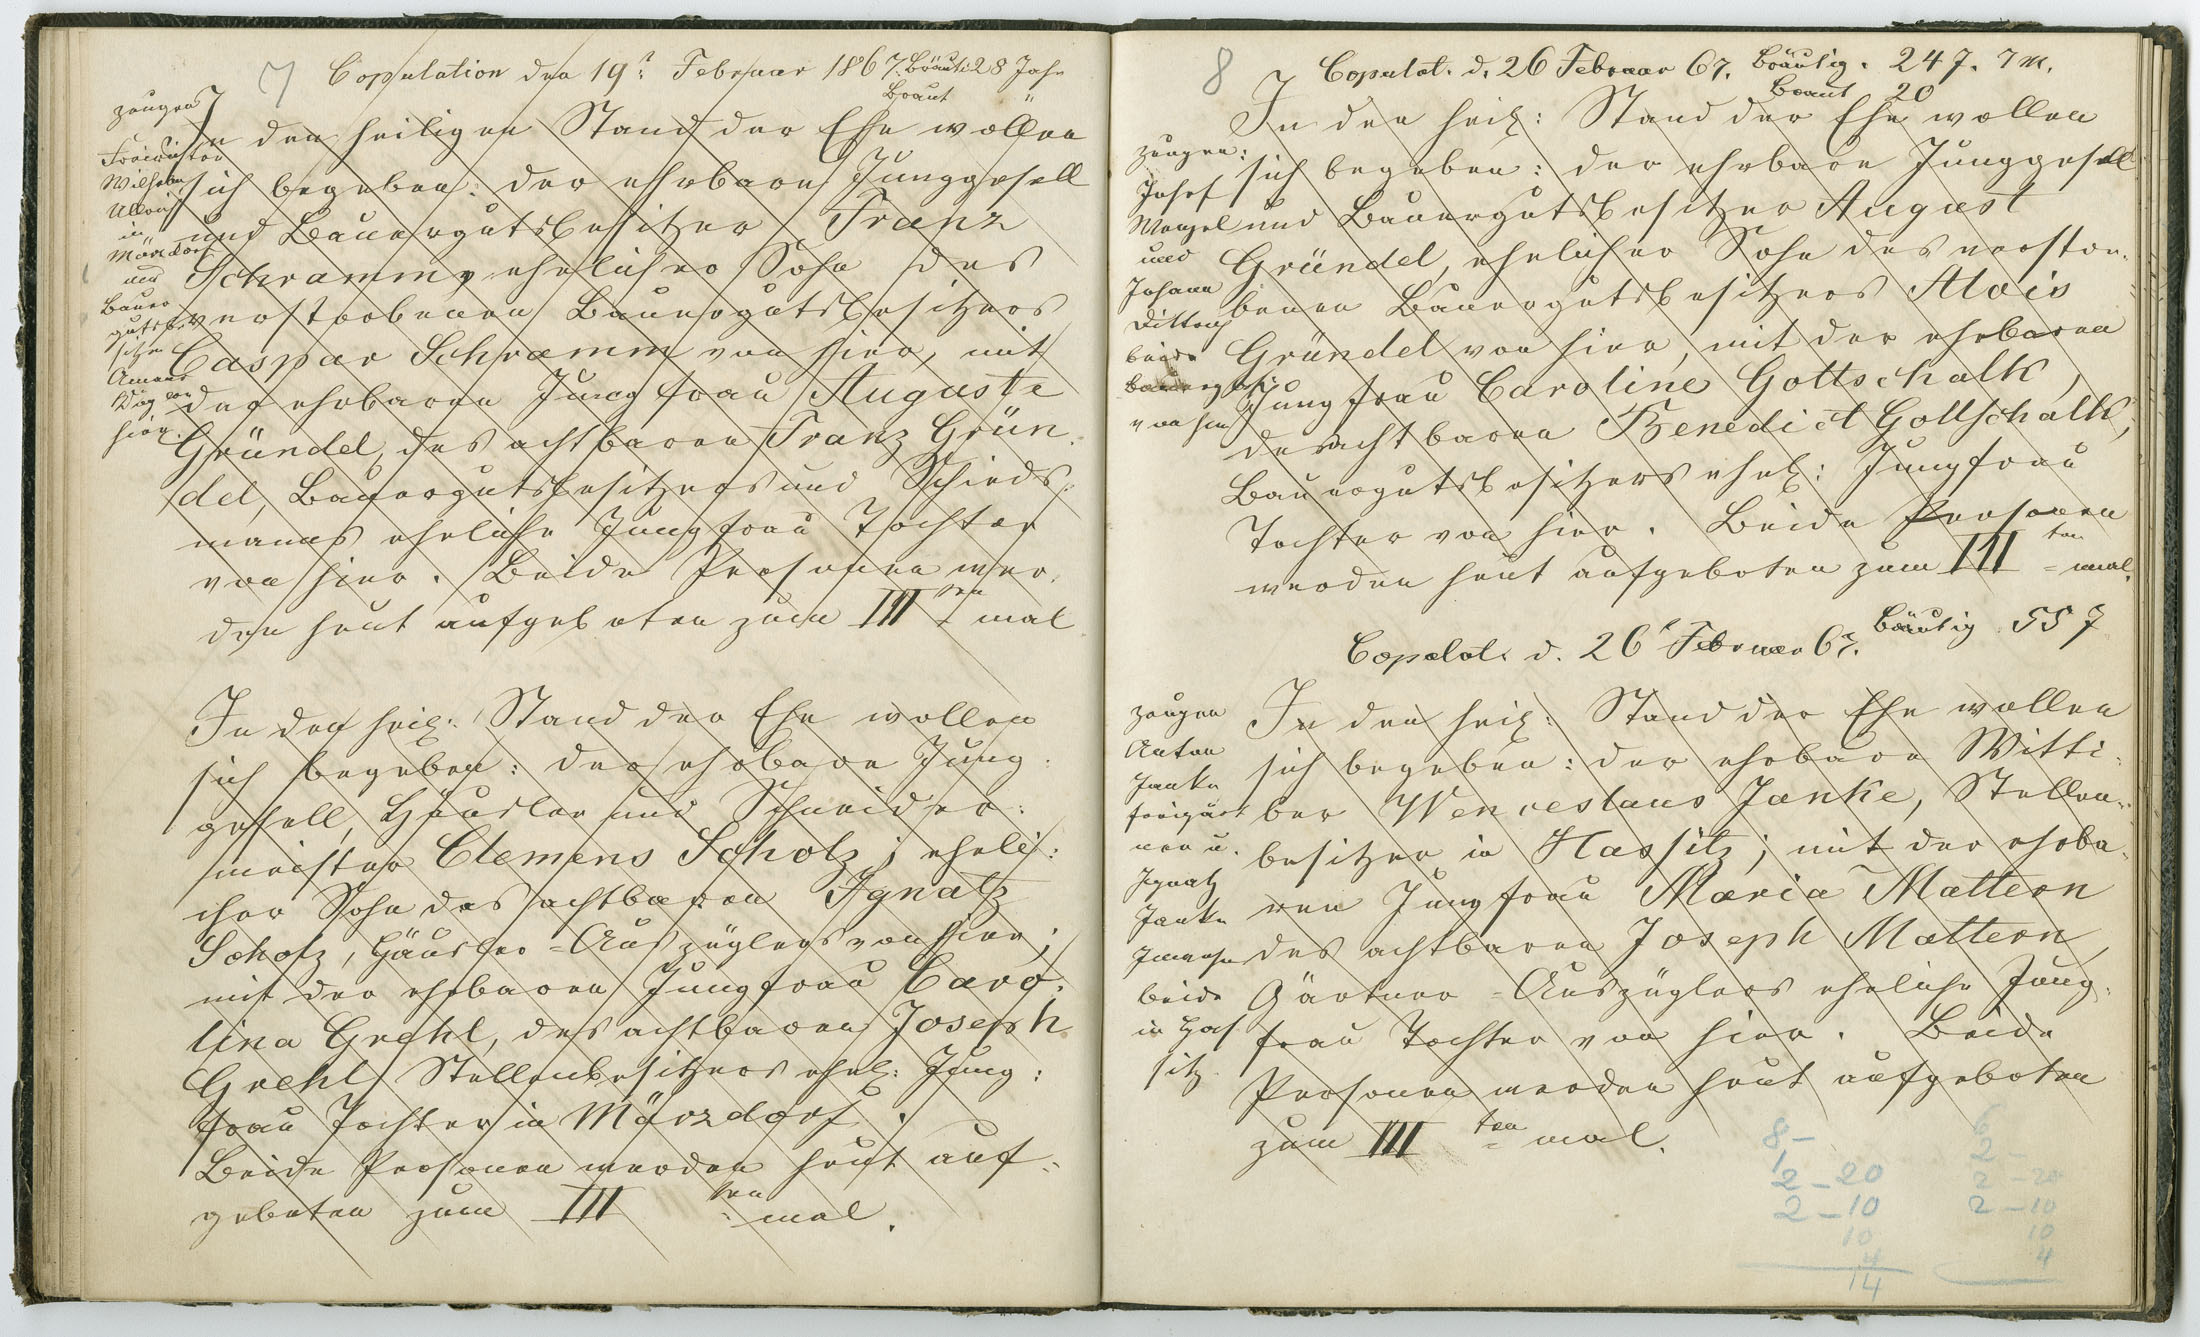 7 Copulation den 19t Februar 1867. Bräuti 28 Jahr
Braut "
Zeugen
Freirichter
Wilhelm
in
Märzdorf
und
Bauer
gutsbe
sitzer
Amand
von
hier.
In den heiligen Stand der Ehe wollen
sich begeben: der ehrbare Junggesell
und Bauergutsbesitzer Franz
Schramm, ehelicher Sohn des
verstorbenen Bauergutsbesitzers
Caspar Schramm von hier, mit
der ehrbaren Jungfrau Auguste
Gründel, des achtbaren Franz Grün-
del, Bauergutsbesitzers und Schieds-
manns eheliche Jungfrau Tochter
von hier. Beide Personen wer-
den heut aufgeboten zum III ten mal
In den heil: Stand der Ehe wollen
sich begeben: der ehrbare Jung-
gesell, Häusler und Schneider-
meister Clemens Scholz; eheli-
cher Sohn des achtbaren Ignatz
Scholz, Häusler-Auszüglers von hier;
mit der ehrbaren Jungfrau Caro-
lina Grehl, des achtbaren Joseph
Grehl Stellenbesitzers ehel: Jung-
frau Tochter in Märzdorf.
Beide Personen werden heut auf-
geboten zum III ten mal.
8 Copulat. d. 26 Februar 67. Bräutig. 24 J. 7 M.
Braut 20
Zeugen:
Josef
Wenzel
und
Johann
Dittrich
beide
Bauergutsb.
von hier
In den heil: Stand der Ehe wollen
sich begeben: der ehrbare Junggesell
und Bauergutsbesitzer August
Gründel, ehelicher Sohn des verstor-
benen Bauergutsbesitzers Alois
Gründel von hier, mit der ehrbaren
Jungfrau Caroline Gottschalk,
des achtbaren Benedict Gottschalk,
Bauergutsbesitzers ehel: Jungfrau
Tochter von hier. Beide Personen
werden heut aufgeboten zum III ten mal.
Copulat. d. 26t Februar 67. Bräutig 55 J
Zeugen
Anton
Janke
freigärt
ner u.
Ignatz
Janke
beide
in Has
sitz
In den heil: Stand der Ehe wollen
sich begeben: der ehrbare Witti-
ber Wenceslaus Janke, Stellen-
besitzer in Hassitz; mit der ehrba-
ren Jungfrau Maria Mattern
des achtbaren Joseph Mattern,
Gärtner-Auszüglers eheliche Jung-
frau Tochter von hier. Beide
Personen werden heut aufgeboten
zum III ten mal.
8 -
2 - 20
2 - 10
10
4
14
6
2 -
2 - 20
2 - 10
10
4